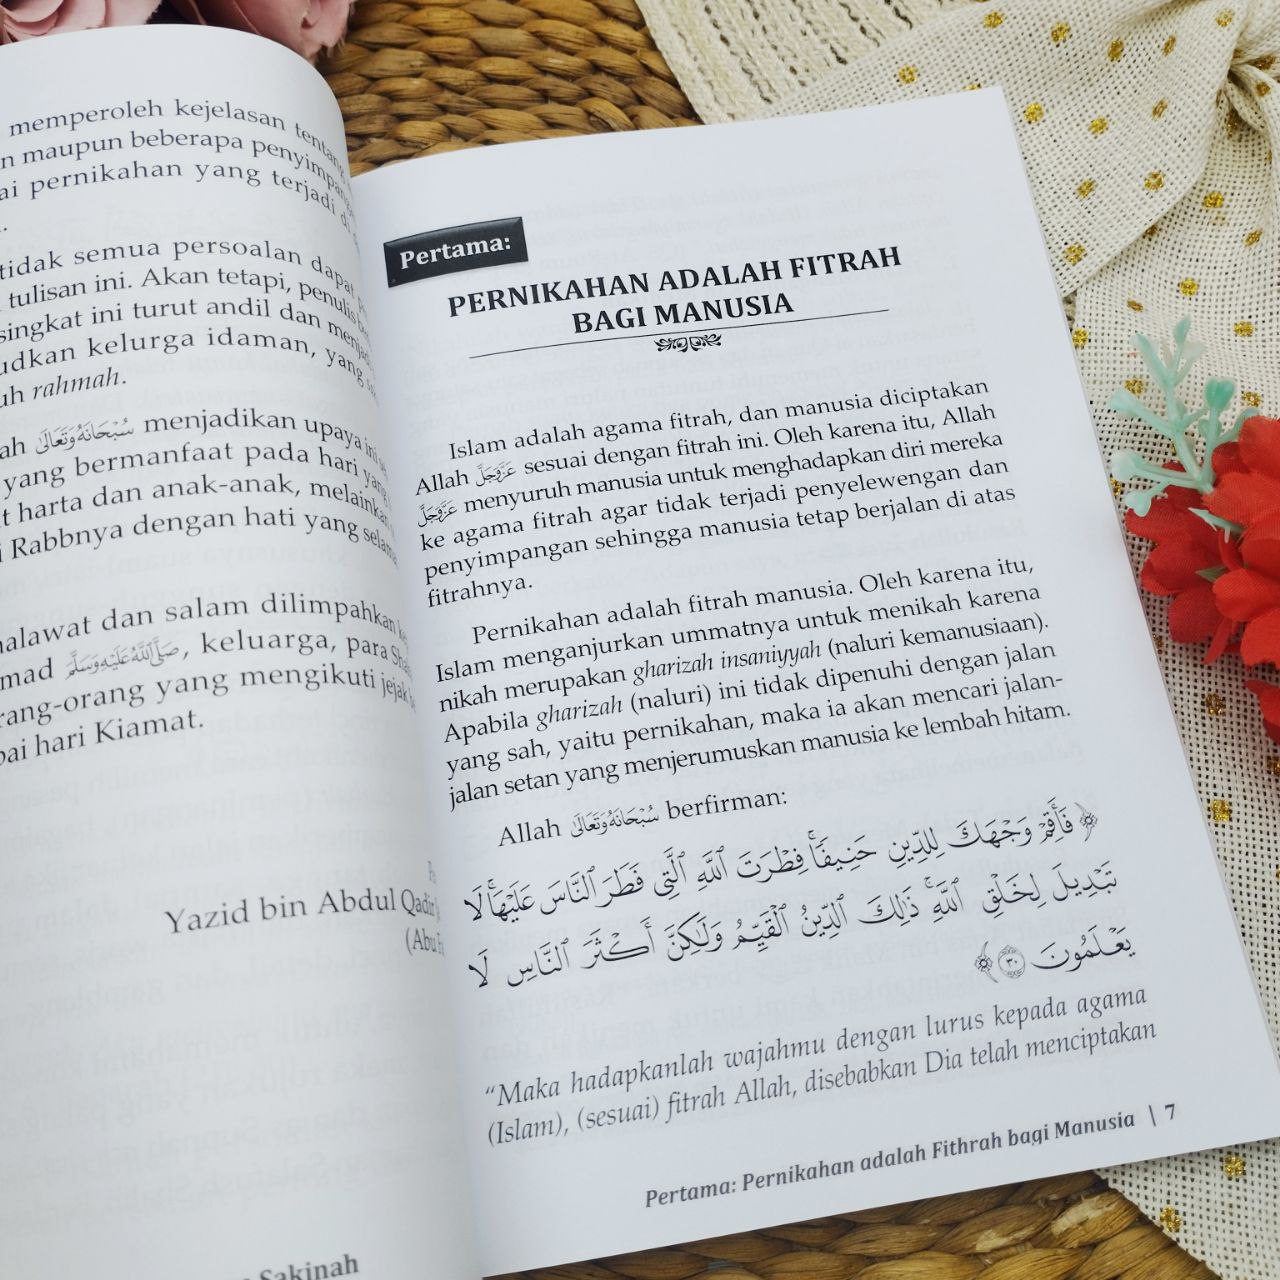 memperoleh kejelasan tentang
n maupun beberapa
ai pernikahan yang terjadi di
tidak semua persoalan dapat
tulisan ini. Akan tetapi, penulis
singkat ini turut andil dan
udkan kelurga idaman, yang
uh rahmah.
ah سُبْحَانَهُ وَتَعَالَىٰ menjadikan upaya ini
yang bermanfaat pada hari yang
t harta dan anak-anak, melainkan
i Rabbnya dengan hati yang
halawat dan salam dilimpahkan
mad صَلَّى اللَّهُ عَلَيْهِ وَسَلَّمَ, keluarga, para
rang-orang yang mengikuti jejak
pai hari Kiamat.
Yazid bin Abdul Qadir
(Abu
Sakinah
Pertama:
PERNIKAHAN ADALAH FITRAH
BAGI MANUSIA
Islam adalah agama fitrah, dan manusia diciptakan
Allah عَزَّ وَجَلَّ sesuai dengan fitrah ini. Oleh karena itu, Allah
عَزَّ وَجَلَّ menyuruh manusia untuk menghadapkan diri mereka
ke agama fitrah agar tidak terjadi penyelewengan dan
penyimpangan sehingga manusia tetap berjalan di atas
fitrahnya.
Pernikahan adalah fitrah manusia. Oleh karena itu,
Islam menganjurkan ummatnya untuk menikah karena
nikah merupakan gharizah insaniyyah (naluri kemanusiaan).
Apabila gharizah (naluri) ini tidak dipenuhi dengan jalan
yang sah, yaitu pernikahan, maka ia akan mencari jalan-
jalan setan yang menjerumuskan manusia ke lembah hitam.
Allah سُبْحَانَهُ وَتَعَالَىٰ berfirman:
﴿ فَأَقِمْ وَجْهَكَ لِلدِّينِ حَنِيفًا ۚ فِطْرَتَ ٱللَّهِ ٱلَّتِي فَطَرَ ٱلنَّاسَ عَلَيْهَا ۚ لَا
تَبْدِيلَ لِخَلْقِ ٱللَّهِ ۚ ذَٰلِكَ ٱلدِّينُ ٱلْقَيِّمُ وَلَٰكِنَّ أَكْثَرَ ٱلنَّاسِ لَا
يَعْلَمُونَ ٣٠ ﴾
“Maka hadapkanlah wajahmu dengan lurus kepada agama
(Islam), (sesuai) fitrah Allah, disebabkan Dia telah menciptakan
Pertama: Pernikahan adalah Fithrah bagi Manusia | 7